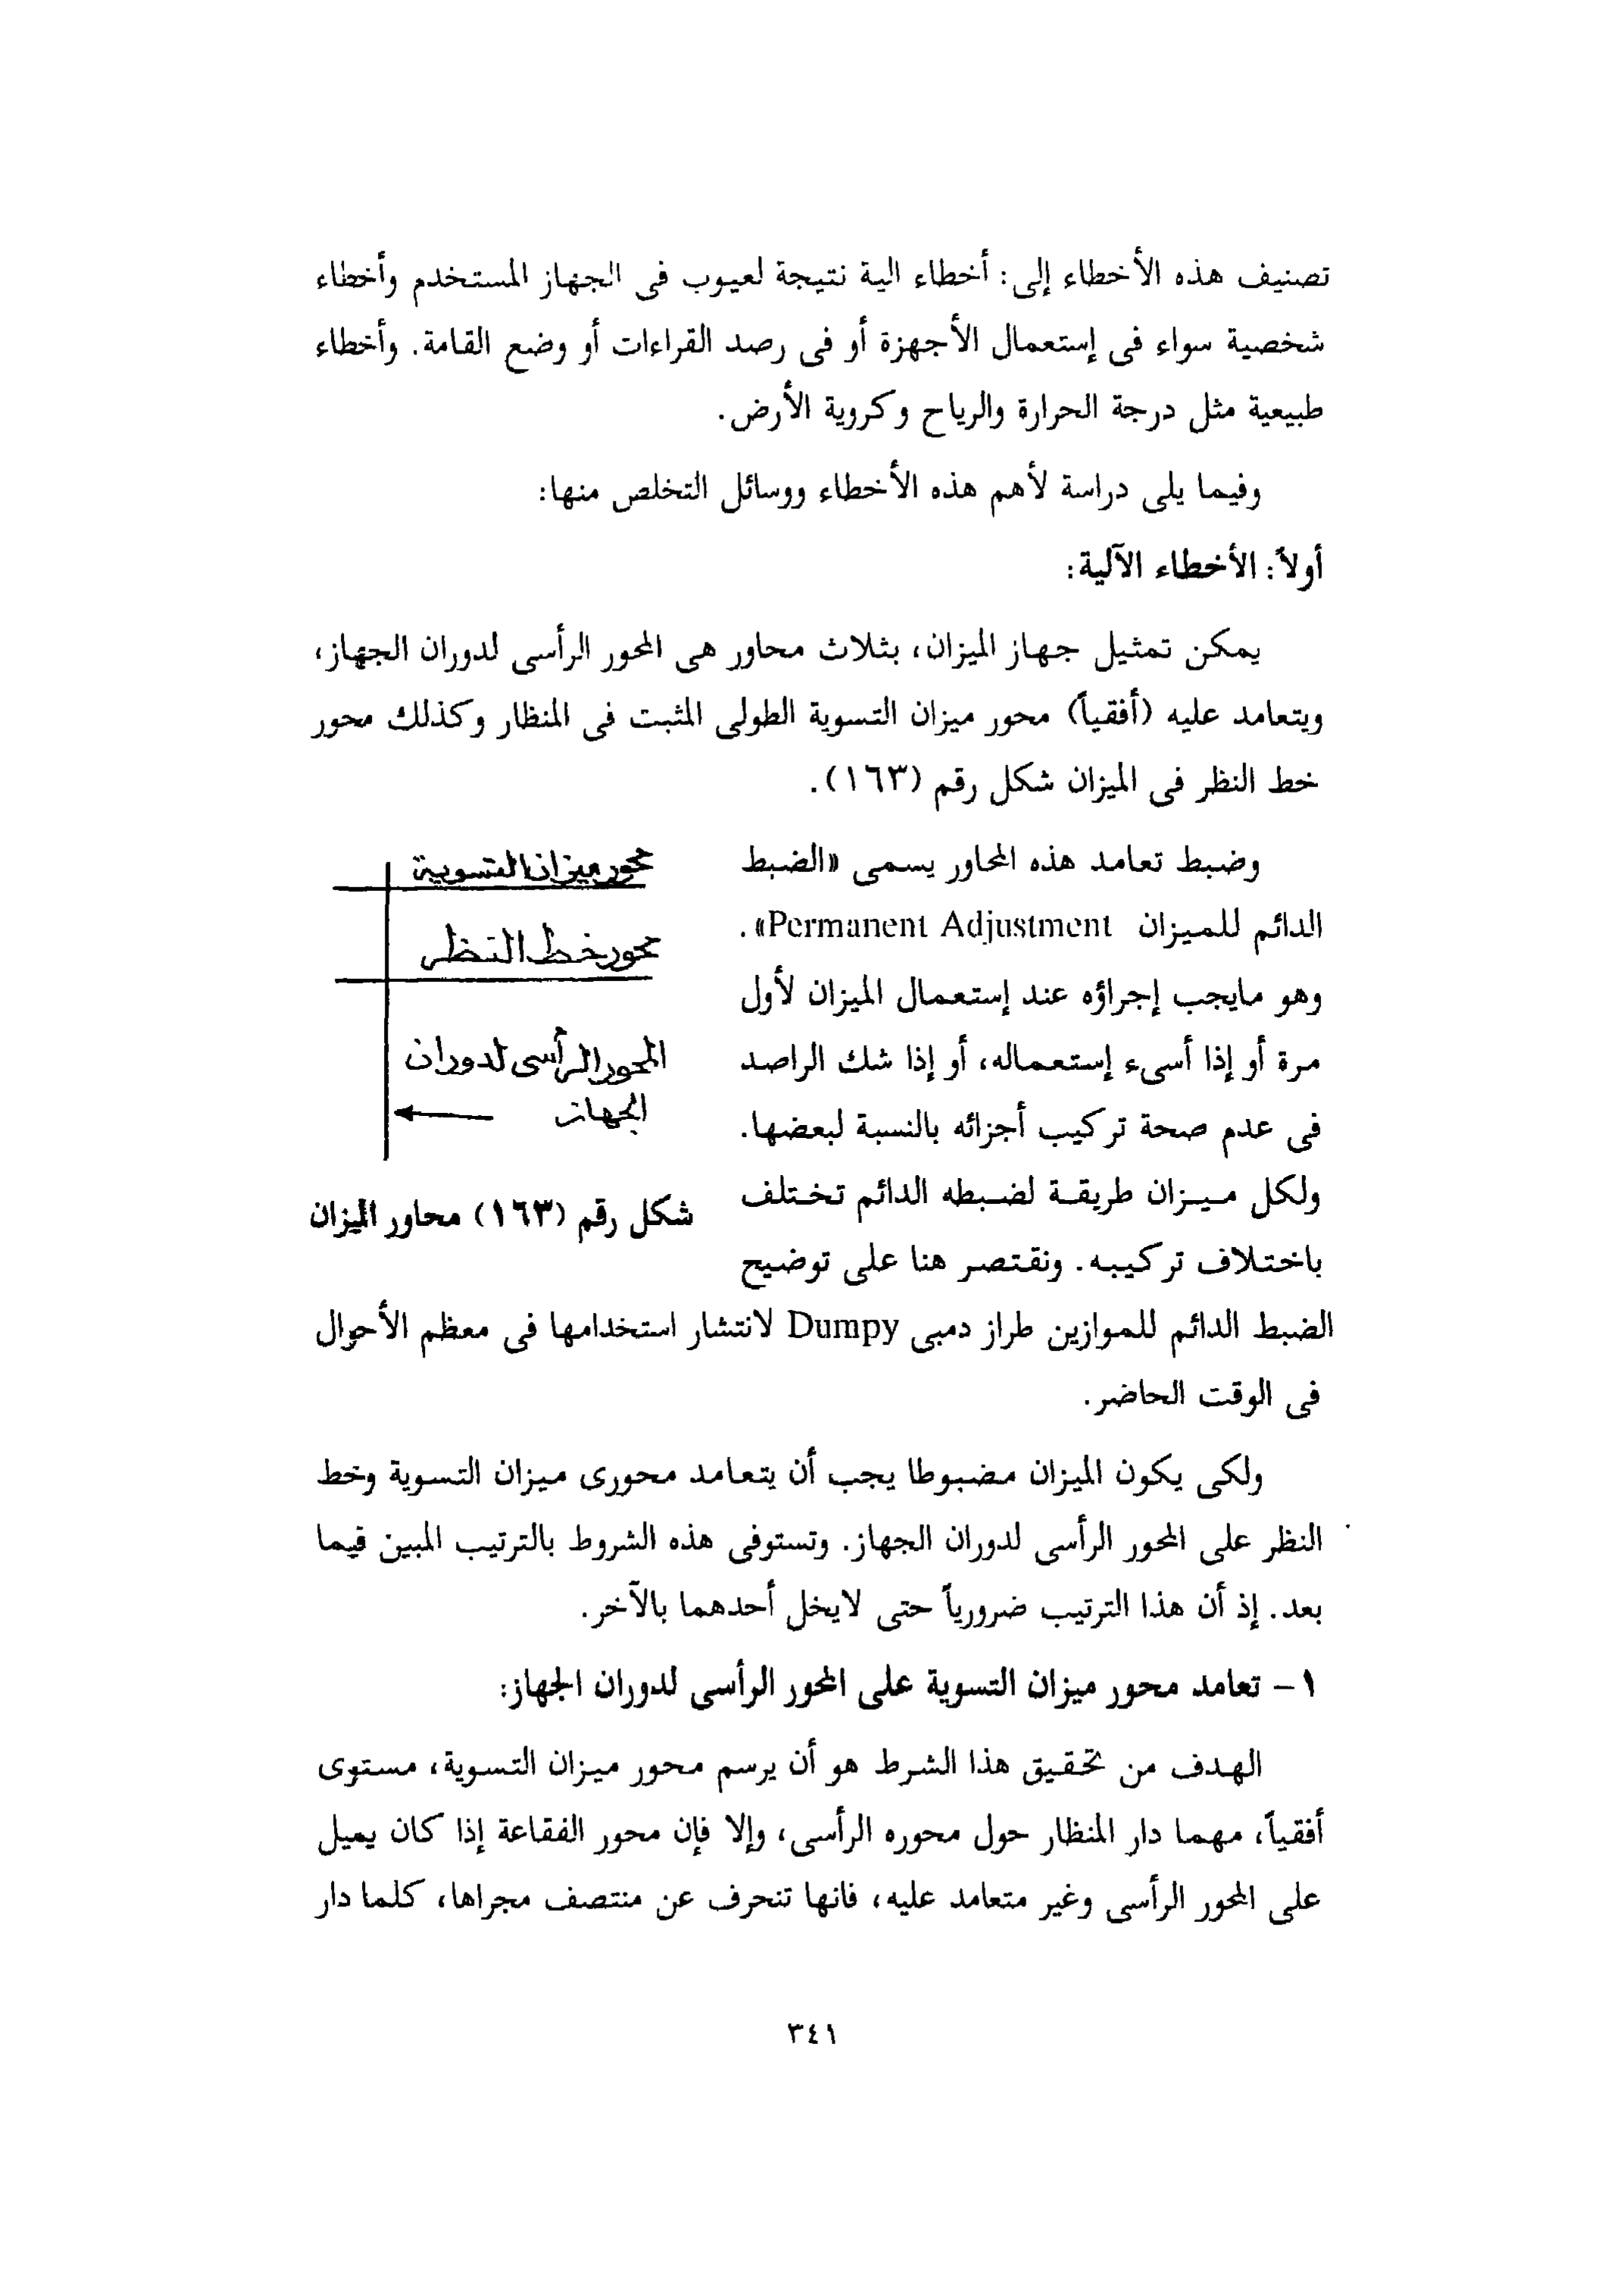 تصنيف هذه الأخطاء إلى: أخطاء الية نتيجة لعيوب فى الجهاز المستخدم وأخطاء
شخصية سواء فى إستعمال الأجهزة أو فى رصد القراءات أو وضع القامة. وأخطاء
طبيعية مثل درجة الحرارة والرياح وكروية الأرض.
وفيما يلى دراسة لأهم هذه الأخطاء ووسائل التخلص منها:
أولاً: الأخطاء الآلية:
يمكن تمثيل جهاز الميزان، بثلاث محاور هى المحور الرأسى لدوران الجهاز،
ويتعامد عليه (أفقياً) محور ميزان التسوية الطولى المثبت فى المنظار وكذلك محور
خط النظر فى الميزان شكل رقم (١٦٣).
وضبط تعامد هذه المحاور يسمى «الضبط
الدائم للميزان Permanent Adjustment».
وهو مايجب إجراؤه عند إستعمال الميزان لأول
مرة أو إذا أسىء إستعماله، أو إذا شك الراصد
فى عدم صحة تركيب أجزائه بالنسبة لبعضها.
ولكل ميزان طريقة لضبطه الدائم تختلف
باختلاف تركيبه. ونقتصر هنا على توضيح
محور ميزان التسوية
محور خط النظر
المحور الرأسى لدوران
الجهاز
شكل رقم (١٦٣) محاور الميزان
الضبط الدائم للموازين طراز دمبى Dumpy لانتشار استخدامها فى معظم الأحوال
فى الوقت الحاضر.
ولكى يكون الميزان مضبوطا يجب أن يتعامد محورى ميزان التسوية وخط
النظر على المحور الرأسى لدوران الجهاز. وتستوفى هذه الشروط بالترتيب المبين فيما
بعد. إذ أن هذا الترتيب ضرورياً حتى لايخل أحدهما بالآخر.
١- تعامد محور ميزان التسوية على المحور الرأسى لدوران الجهاز:
الهدف من تحقيق هذا الشرط هو أن يرسم محور ميزان التسوية، مستوى
أفقياً، مهما دار المنظار حول محوره الرأسى، وإلا فإن محور الفقاعة إذا كان يميل
على المحور الرأسى وغير متعامد عليه، فانها تنحرف عن منتصف مجراها، كلما دار
٣٤١